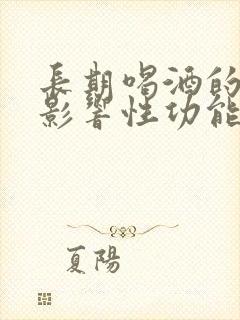 長期喝酒的
影響性功能
夏陽